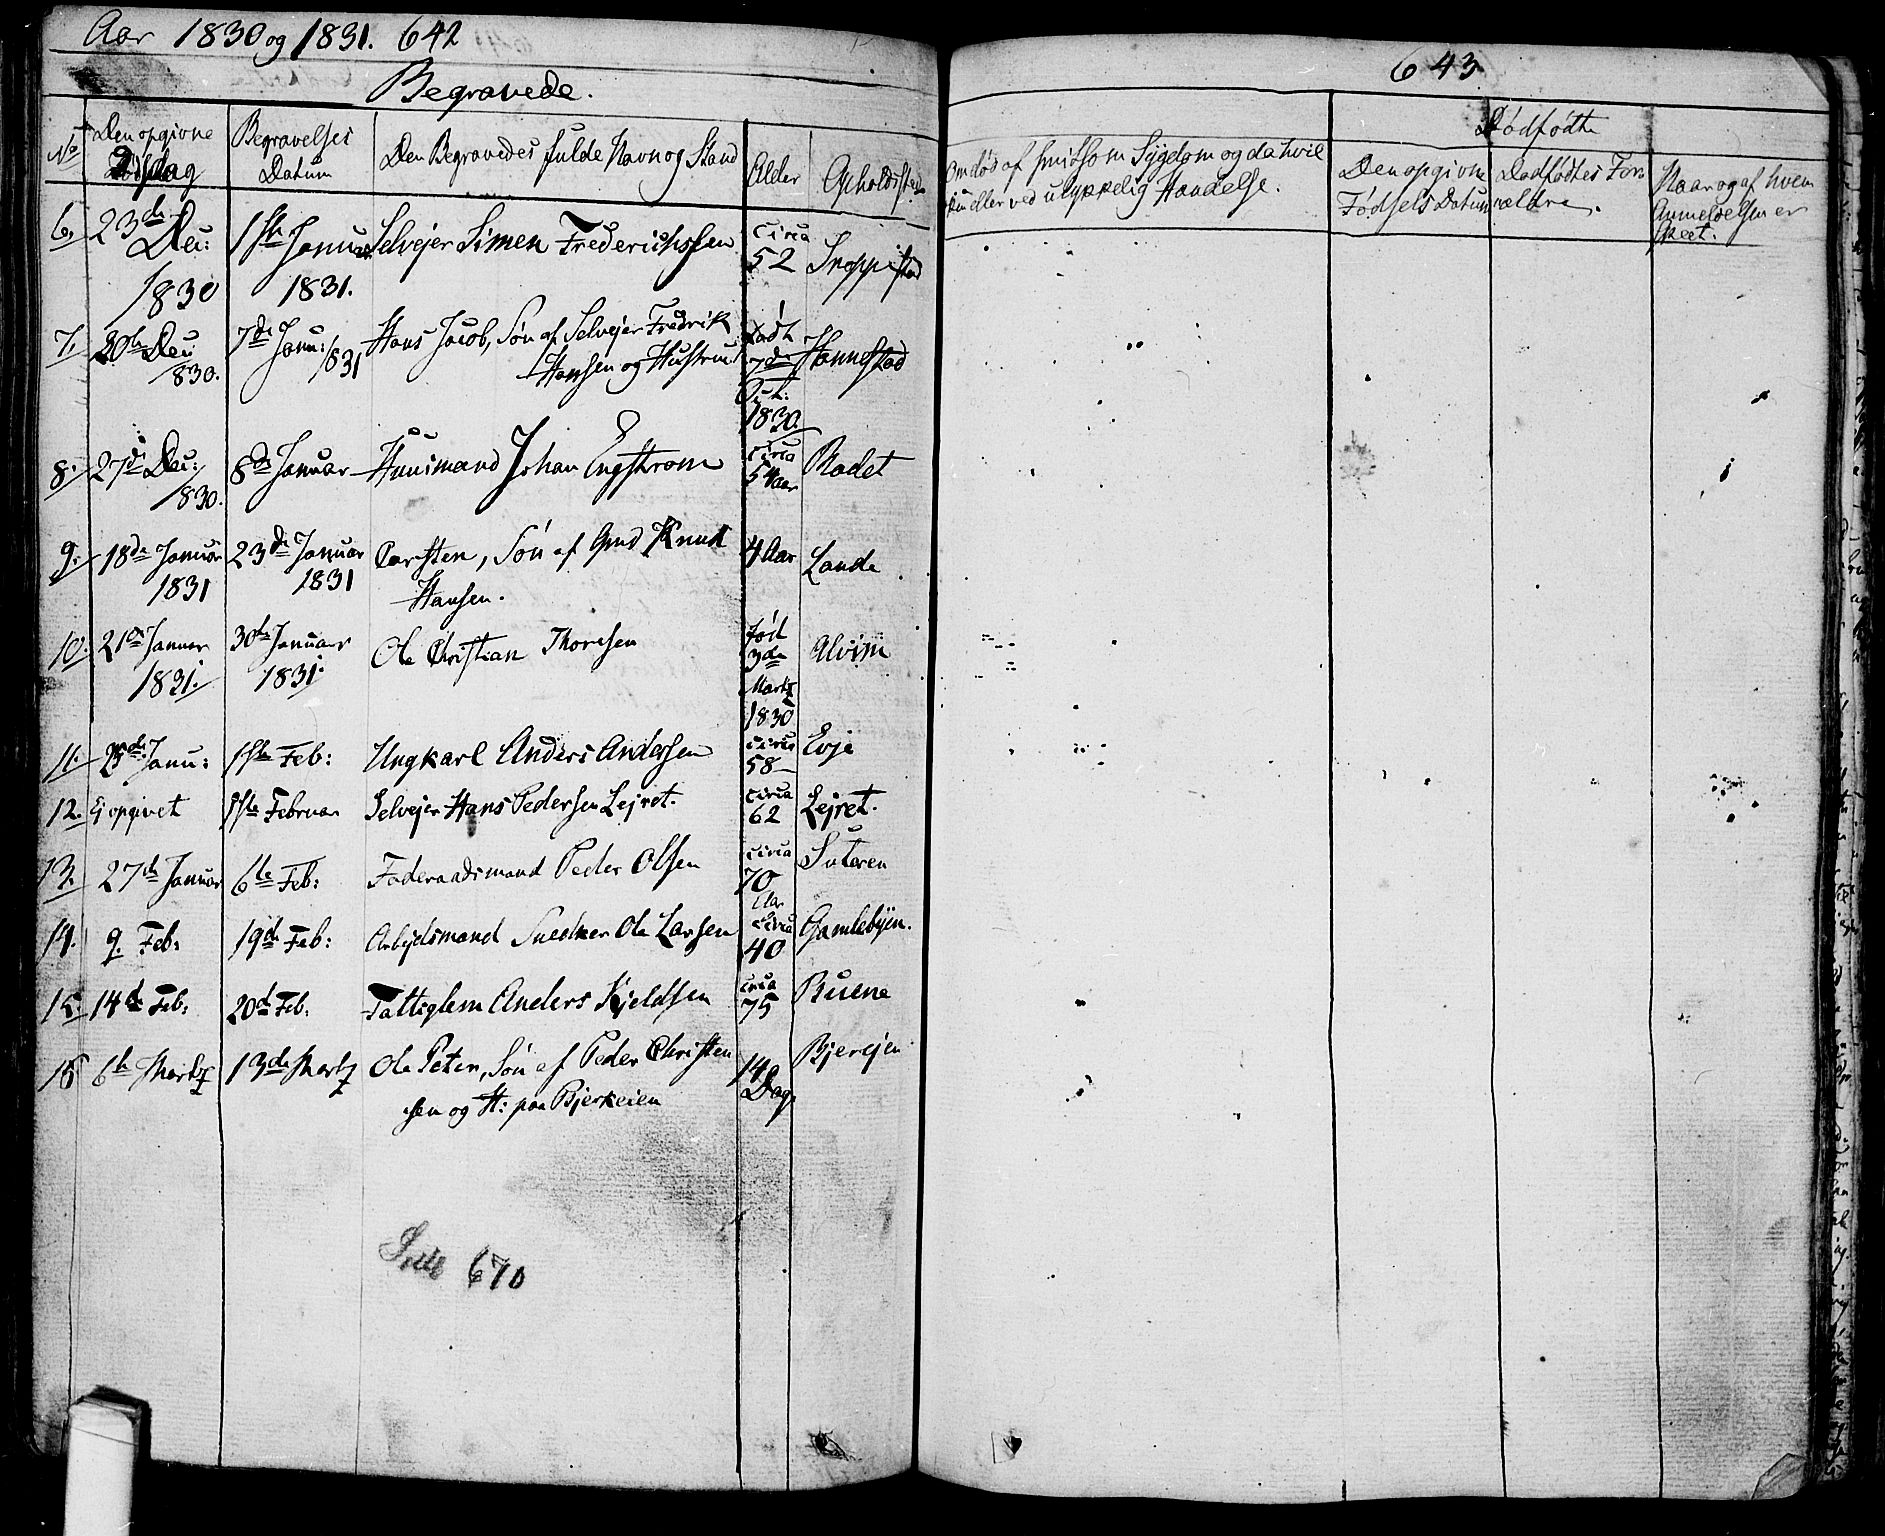 Aar 1830 og 1831. 642
Begravede.
No Den opgivne Dødsdag Begravelses Datum Den Begravedes fulde Navn og Stand Alder Opholdssted
6, 23de Dec: 1830 1ste Januar 1831. Selvejer Simen Frederichssen circa 52 Snoppestad
7, 30te Dec 1830. 7de Janu: 1831 Hans Jacob, Søn af Selvejer Fredrik
Hansen og Hustru Født 7de Oct: 1830. Hannestad
8. 27de Dec: 1830. 8de Januar Huusmand Johan Engstrom circa 54 aar Rødet
9. 18de Januar 1831 23de Januar 1831 Carsten, Søn af Gmd Knud
Hansen. 4 Aar Lande
10. 21de Januar 1831. 30te Januar 1831. Ole Christian Thoresen Fød 3de Martz 1830 Alvim
11. Janu: 1ste Feb: Ungkarl Anders Andersen circa 58 Evje
12. Ej opgivet 1ste Februar Selvejer Hans Pedersen Lejret. circa 62 Lejret.
13. 27de Januar 6te Feb: Føderaadsmand Peder Olsen circa 70 Aar Suteren
14. 9. Feb: 19de Feb: Arbejdsmand Snedker Ole Larsen circa 40 Gamlebyen.
15. 14de Feb: 20de Feb: Fattiglem Anders Kjeldsen circa 75 Buene
16 6te Martz 13de Martz Ole Peter, Søn af Peder Christen
sen og H: paa Bjerkeien 14 Dag Bjerejen
Side 670
643
Dødfødte
Om død af smitsom Sygdom og da hvil
ken eller ved ulykkelig Hændelse.
Den opgivne
Fødsels Datum
Dødfødtes For
ældre.
Naar og af hvem
Anmeldelsen er
skeet.